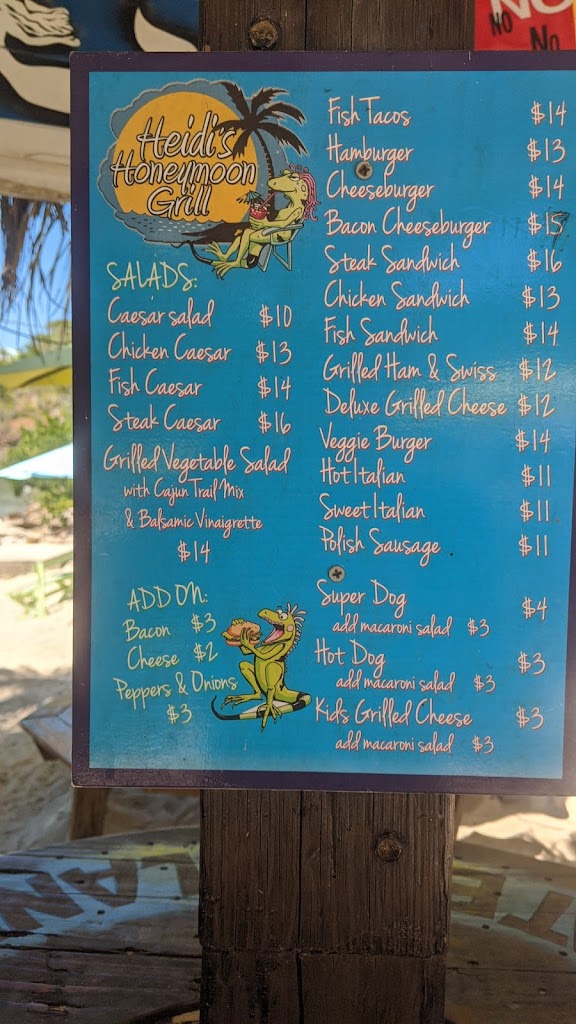 NO
NO
No
Heidi's
Honeymoon
Grill
SALADS:
Caesar salad $10
Chicken Caesar $13
Fish Caesar $14
Steak Caesar $16
Grilled Vegetable Salad
with Cajun Trail Mix
& Balsamic Vinaigrette
$14
ADD ON:
Bacon $3
Cheese $2
Peppers & Onions
$3
Fish Tacos $14
Hamburger $13
Cheeseburger $14
Bacon Cheeseburger $15
Steak Sandwich $16
Chicken Sandwich $13
Fish Sandwich $14
Grilled Ham & Swiss $12
Deluxe Grilled Cheese $12
Veggie Burger $14
Hot Italian $11
Sweet Italian $11
Polish Sausage $11
Super Dog $4
add macaroni salad $3
Hot Dog $3
add macaroni salad $3
Kids Grilled Cheese $3
add macaroni salad $3